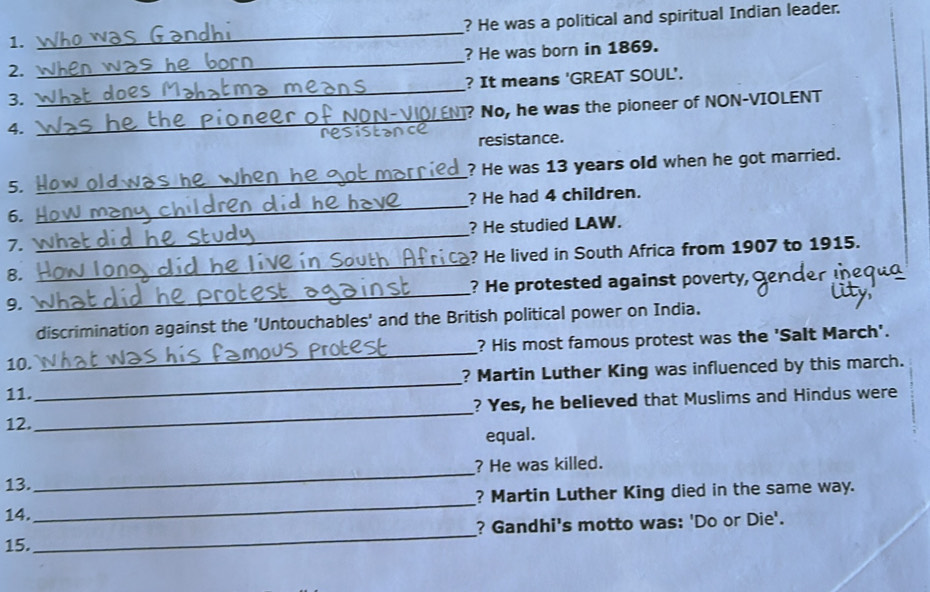 1. Who was Gandhi ? He was a political and spiritual Indian leader.
2. When was he born ? He was born in 1869.
3. What does Mahatma means ? It means 'GREAT SOUL'.
4. Was he the pioneer of NON-VIOLENT? No, he was the pioneer of NON-VIOLENT
resistance resistance.
5. How old was he when he got married ? He was 13 years old when he got married.
6. How many children did he have ? He had 4 children.
7. What did he study ? He studied LAW.
8. How long did he live in South Africa? He lived in South Africa from 1907 to 1915.
9. What did he protest against ? He protested against poverty, gender inequa
lity,
discrimination against the 'Untouchables' and the British political power on India.
10. What was his famous protest ? His most famous protest was the 'Salt March'.
11. ? Martin Luther King was influenced by this march.
12. ? Yes, he believed that Muslims and Hindus were
equal.
13. ? He was killed.
14. ? Martin Luther King died in the same way.
15. ? Gandhi's motto was: 'Do or Die'.